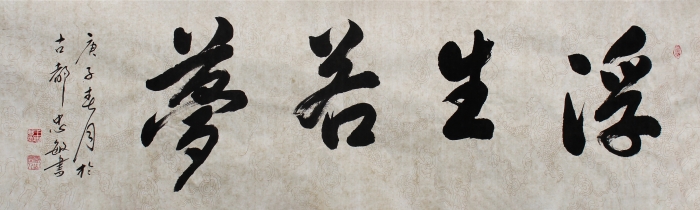 浮生若夢
庚子春月於
古都忠敏書